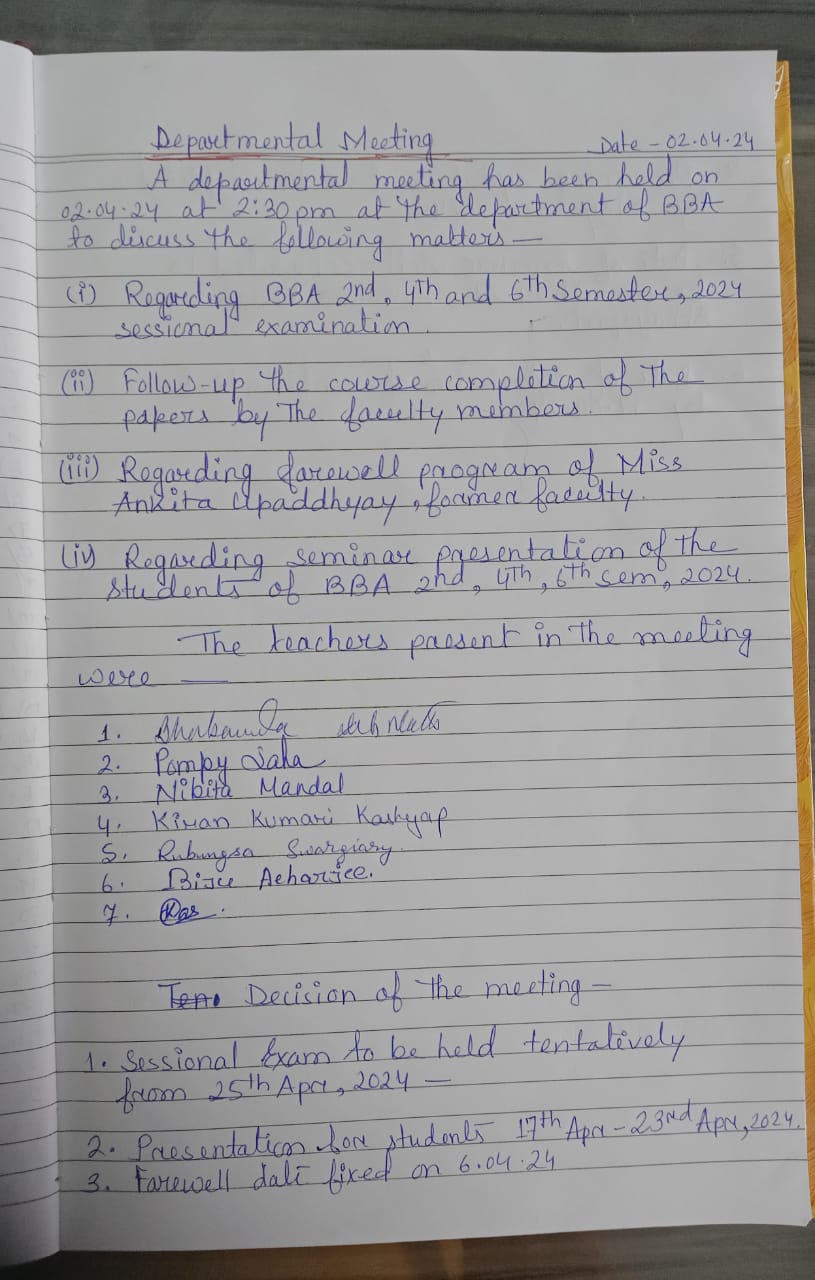 Departmental Meeting Date - 02.04.24
A departmental meeting has been held on
02.04.24 at 2:30pm at the department of BBA
to discuss the following matters —
(i) Regarding BBA 2nd, 4th and 6th Semester, 2024
sessional examination.
(ii) Follow-up the course completion of the
papers by the faculty members.
(iii) Regarding farewell program of Miss
Ankita Upaddhyay, former faculty.
(iv) Regarding seminar presentation of the
students of BBA 2nd, 4th, 6th sem, 2024.
The teachers present in the meeting
were —
1.
2. Pompy Saha
3. Nibita Mandal
4. Kiran Kumari Kashyap
5. Rubungsa Swargiary.
6. Biju Acharjee.
7. Das.
Decision of the meeting —
1. Sessional Exam to be held tentatively
from 25th Apr, 2024 —
2. Presentation for students 17th Apr - 23rd Apr, 2024.
3. Farewell date fixed on 6.04.24